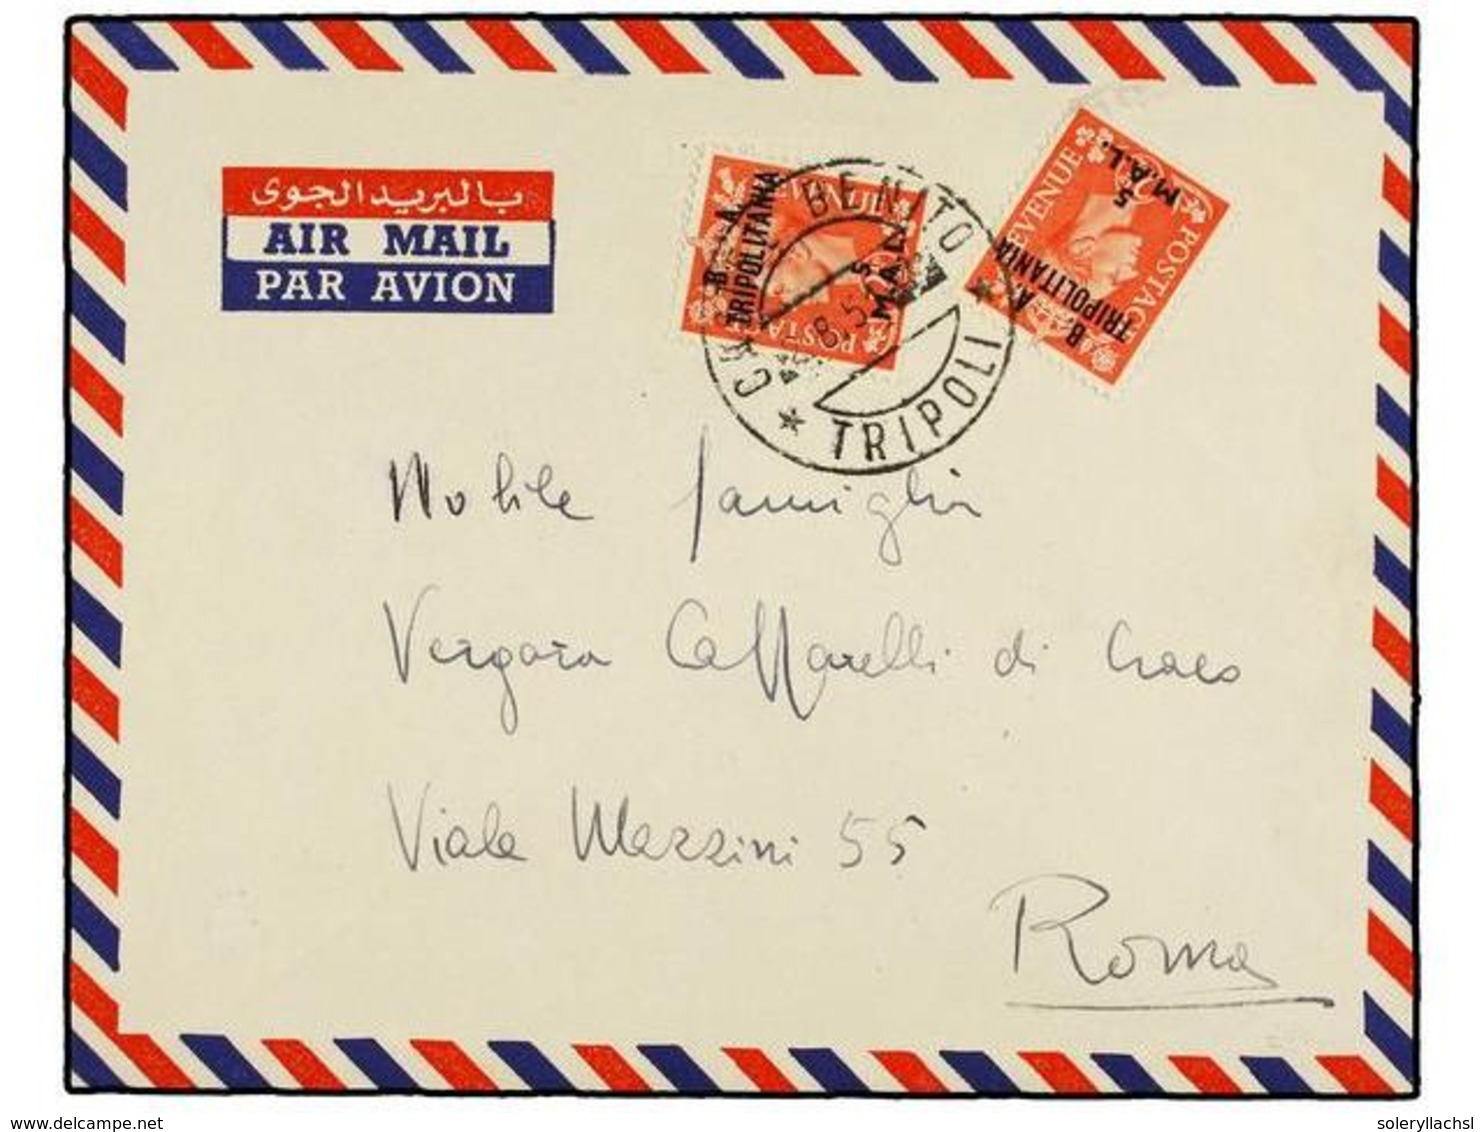 بالبريد الجوى
AIR MAIL
PAR AVION
B. A.
TRIPOLITANIA
5
M.A.L.
POSTAGE
BENITO
TRIPOLI
8.5
REVENUE
POSTAGE
B. A.
TRIPOLITANIA
5
M.A.L.
Nobile famiglia
Vergara Caffarelli di Craco
Viale Mazzini 55
Roma
delcampe.net
soleryllachsl